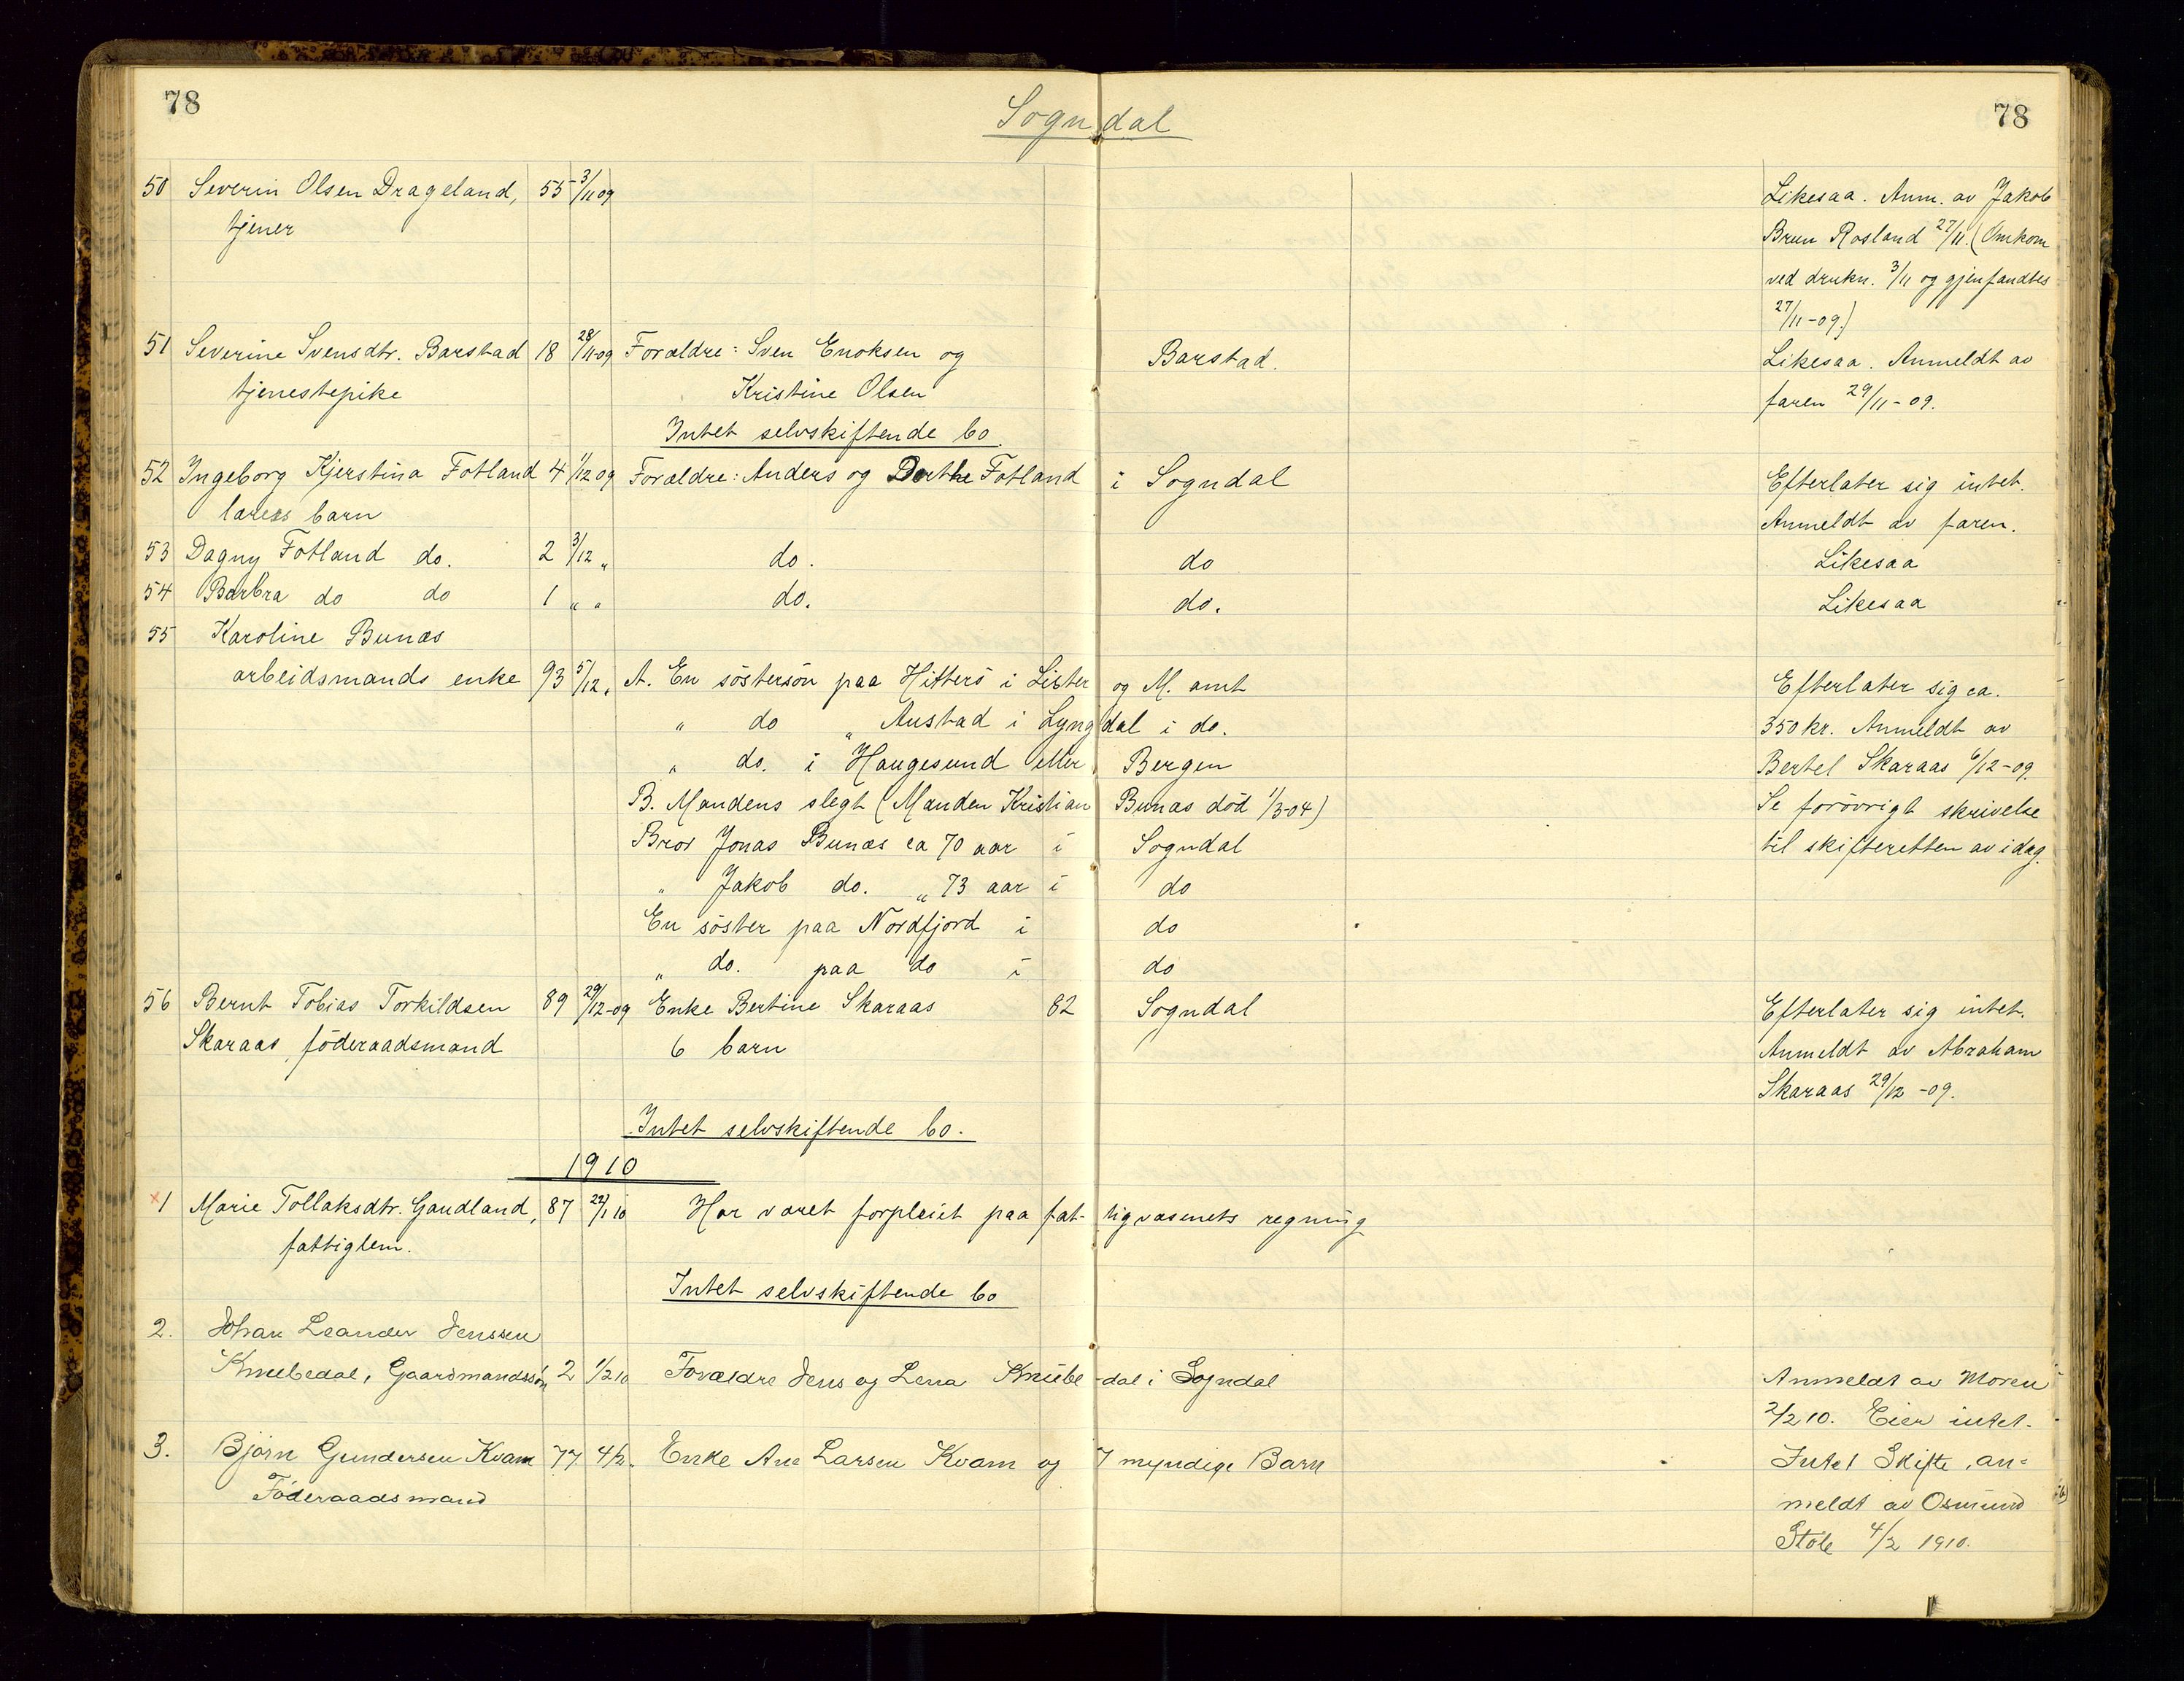 78
Sogndal
78
50 Severin Olsen Drageland, 55 3/11 09 Likesaa. Anm. av Jakob
tjener Brun Rosland 27/11. (Omkom
ved drukn. 3/11 og gjenfandtes
27/11-09.)
51 Severine Svensdtr. Barstad 18 28/11-09 Forældre: Sven Enoksen og Barstad. Likesaa. Anmeldt av
tjenestepike Kristine Olsen faren 29/11-09.
Intet selvskiftende bo.
52 Ingeborg Kjerstina Fotland 4 1/12 09 Forældre: Anders og Dorthe Fotland i Sogndal Efterlater sig intet.
lærers barn Anmeldt av faren.
53 Dagny Fotland do. 2 3/12 " do. do Likesaa
54 Barbra do do 1 " " do. do. Likesaa
55 Karoline Bunæs
arbeidsmands enke 93 5/12 " A. En søstersøn paa Hitterö i Lister og M. amt Efterlater sig ca.
" do " Austad i Lyngdal i do. 350 kr. Anmeldt av
" do. i Haugesund eller Bergen Bertel Skaraas 6/12-09.
B. Mandens slegt (Manden Kristian Bunæs död 1/3-04) Se forövrigt skrivelse
Bror Jonas Bunæs ca 70 aar i Sogndal til skifteretten av idag.
" Jakob do. " 73 aar i do
En söster paa Nordfjord i do
" do. paa do i do
56 Bernt Tobias Torkildsen 89 29/12-09 Enke Bertine Skaraas 82 Sogndal Efterlater sig intet.
Skaraas, föderaadsmand 6 barn Anmeldt av Abraham
Skaraas 29/12-09.
Intet selvskiftende bo.
1910
x1 Marie Tollaksdtr. Gaudland, 87 22/1 10 Har været forpleiet paa fattigvæsenets regning
fattiglem.
Intet selvskiftende bo
2. Johan Leander Jenssen
Knubedal, Gaardmandssön 2 1/2 10 Forældre Jens og Lena Knube-dal i Sogndal Anmeldt av Moren
2/2 10. Eier intet.
3. Björn Gundersen Kvam 77 4/2. Enke Ane Larsen Kvam og 7 myndige Barn Intet Skifte, an=
Föderaadsmand meldt av Osmund
Stöle 4/2 1910.